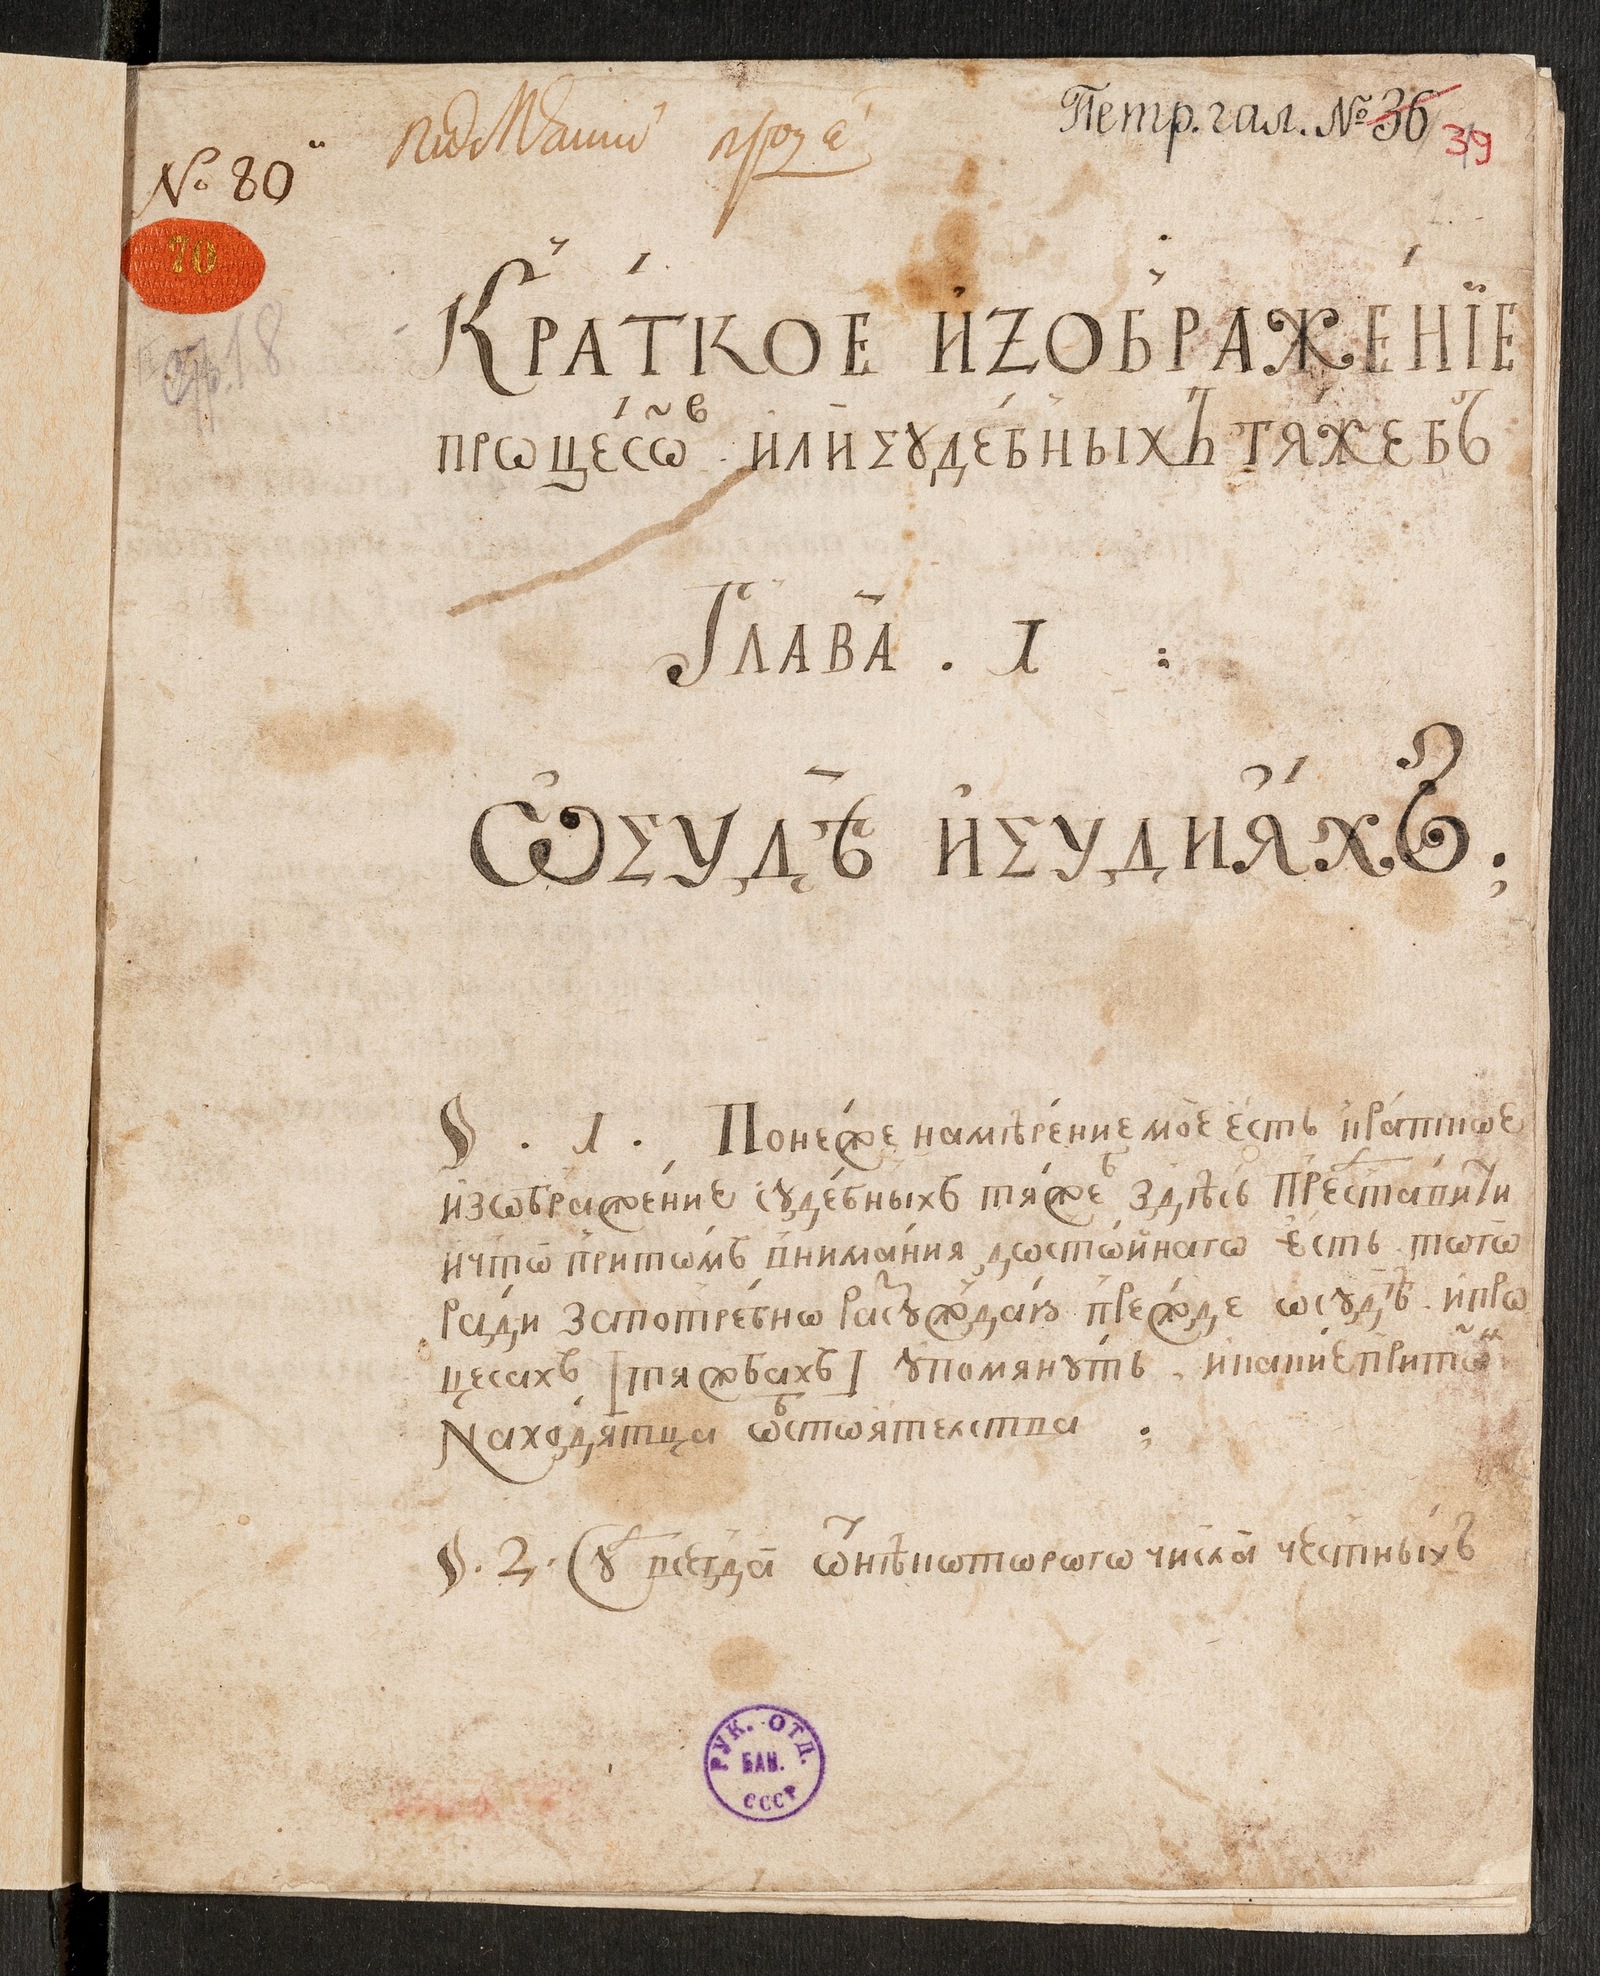 Петр. гал. № 36 39
№ 80
70
18
Краткое иzображенїе
процесѡвъ или судебныхъ тяжебъ
Глава . 1 :
Ѡ судѣ и судияхъ ;
§ . 1 . Понеже намѣрение мое есть краткѡе
изѡбражение сꙋдебныхъ тяжеъ здѣсь преставити
и чтѡ притѡмъ внимания дѡстѡйнагѡ есть тѡгѡ
ради запотребнѡ расꙋждаю прежде ѡ сꙋдѣ . и прѡ
цесахъ [тяжбахъ] ꙋпомянꙋть . и какие притѡм
Находятца ѡбстѡятелства ;
§ . 2 . Сꙋ всегда ѿ нѣкѡтѡрѡгѡ числа честныхъ
РУК. ОТД.
БАН.
СССР